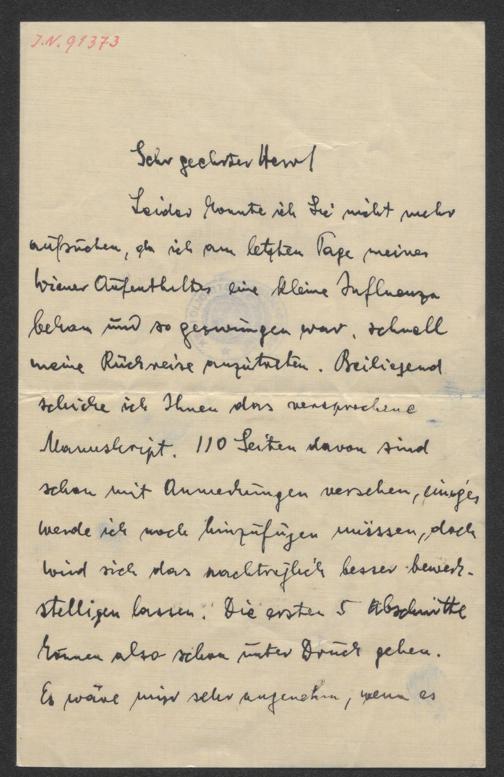 J.N. 91373
Sehr geehrter Herr!
Leider konnte ich Sie nicht mehr
aufsuchen, da ich am letzten Tage meines
Wiener Aufenthaltes eine kleine Influenza
bekam und so gezwungen war, schnell
meine Rückreise anzutreten. Beiliegend
schicke ich Ihnen das versprochene
Manuskript. 110 Seiten davon sind
schon mit Anmerkungen versehen, einiges
werde ich noch hinzufügen müssen, doch
wird sich das nachträglich besser bewerk-
stelligen lassen. Die ersten 5 Abschnitte
können also schon unter Druck gehen.
Es wäre mir sehr angenehm, wenn es